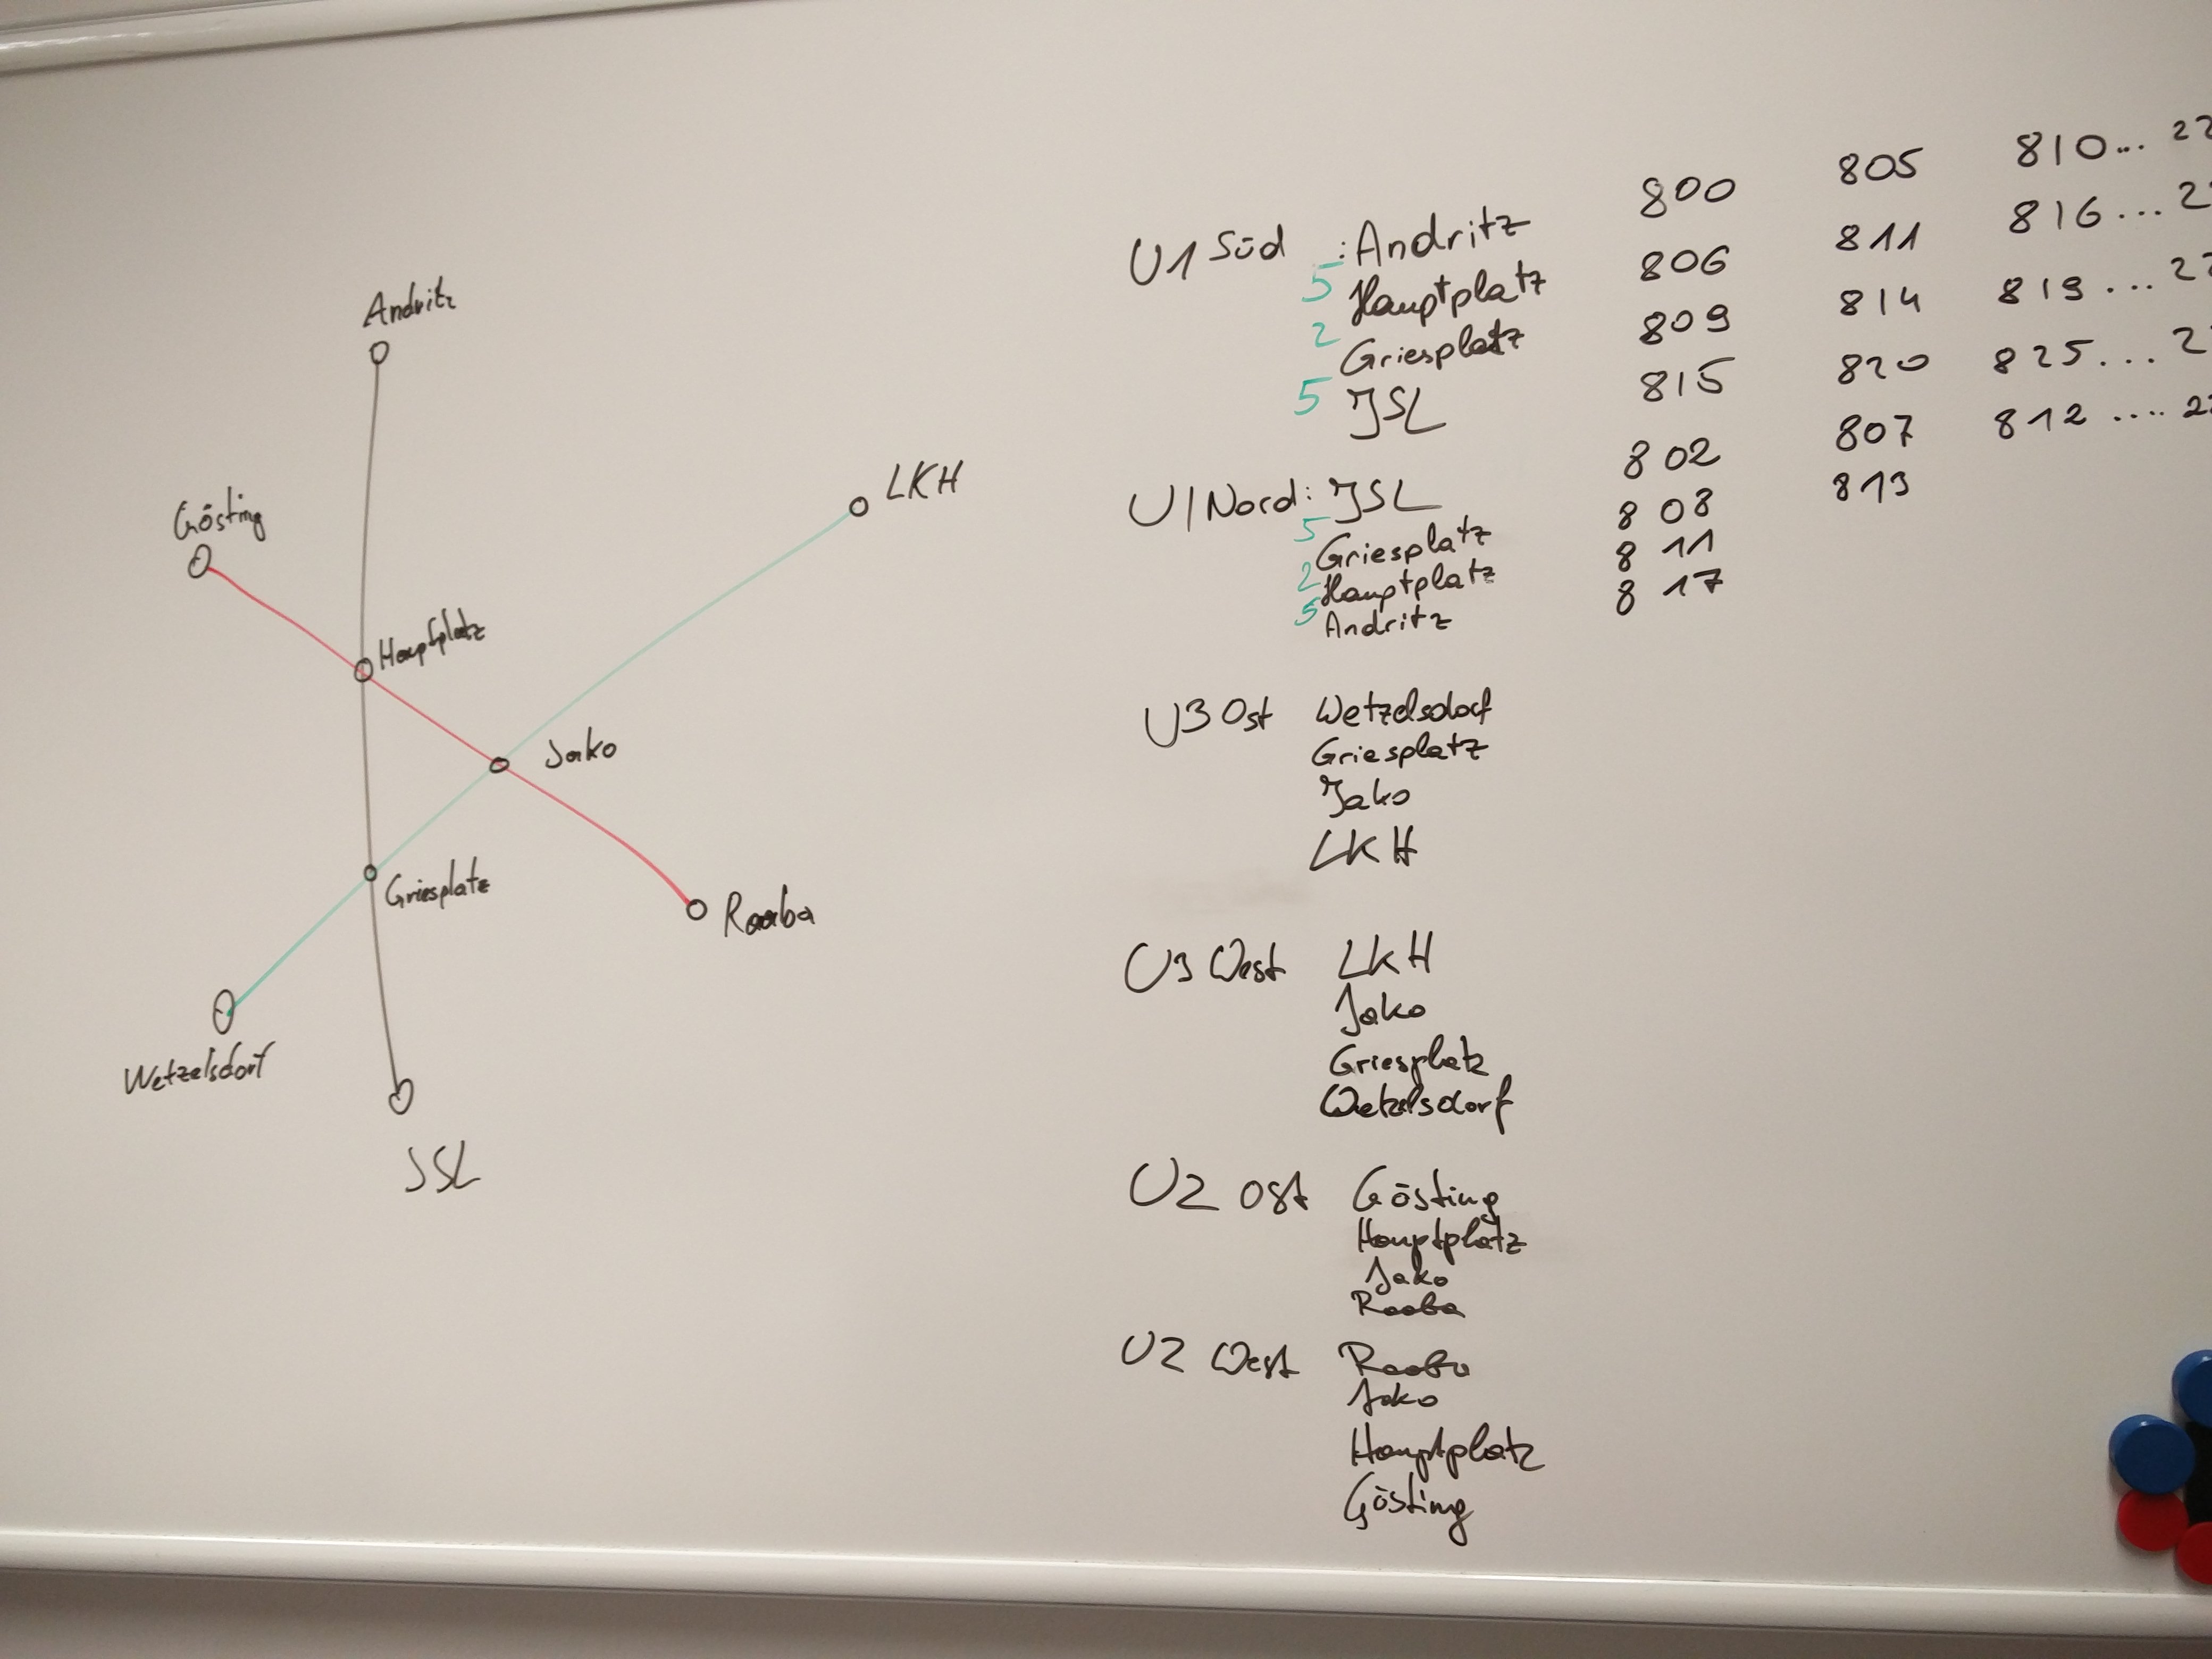 Andritz
Gösting
LKH
Hauptplatz
Jako
Griesplatz
Raaba
Wetzelsdorf
JSL
U1 Süd :Andritz 800 805 810... 22
5
Hauptplatz 806 811 816...
2
Griesplatz 809 814 819... 22
5
JSL 815 820 825...
U1 Nord: JSL 802 807 812....
5
Griesplatz 808 813
2
Hauptplatz 811
5
Andritz 817
U3 Ost Wetzelsdorf
Griesplatz
Jako
LKH
U3 West LKH
Jako
Griesplatz
Wetzelsdorf
U2 Ost Gösting
Hauptplatz
Jako
Raaba
U2 West Raaba
Jako
Hauptplatz
Gösting